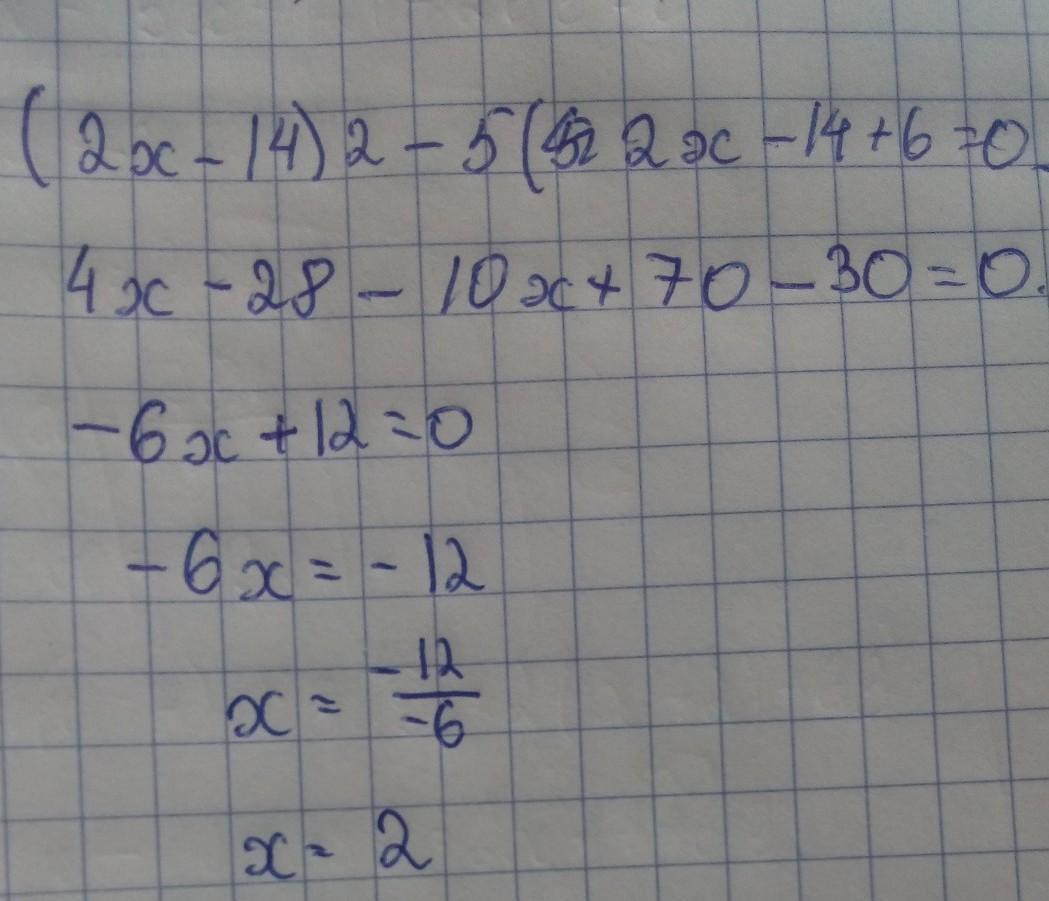 (2x - 14) 2 - 5 ( 2x - 14 + 6 = 0
4x - 28 - 10x + 70 - 30 = 0.
-6x + 12 = 0
-6x = -12
x = -12/-6
x = 2